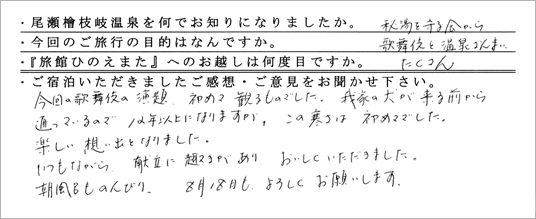 ・尾瀬檜枝岐温泉を何でお知りになりましたか。 秘湯を守る会から
・今回のご旅行の目的はなんですか。 歌舞伎と温泉さんまい
・『旅館ひのえまた』へのお越しは何度目ですか。 たくさん
・ご宿泊いただきましたご感想・ご意見をお聞かせ下さい。
今回の歌舞伎の演題、初めて観るものでした。我家の犬が来る前から
通っているので 12年以上になりますが、この寒さは 初めてでした。
楽しい 想い出となりました。
いつもながら 献立に 趣きがあり おいしくいただきました。
朝風呂ものんびり。 8月18日も よろしく お願いします。